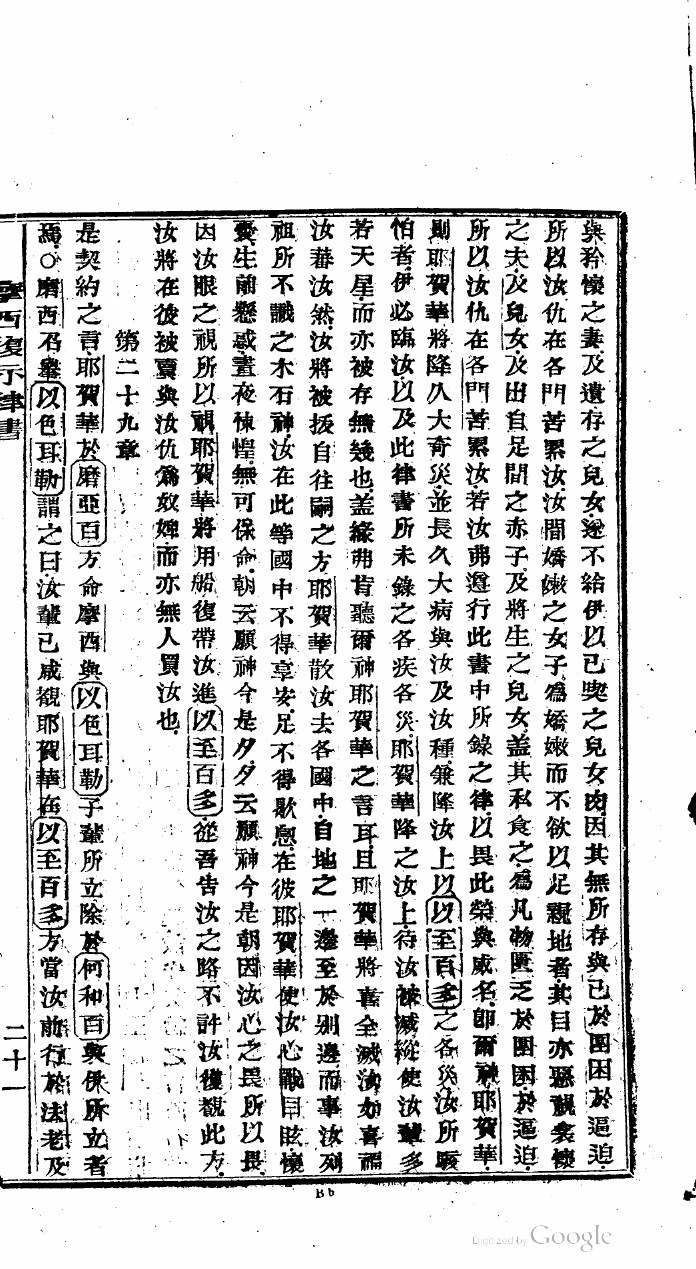 與矜懷之妻及遺存之兒女遂不給伊以已喫之兒女肉因其無所存與己於圍困於逼迫
所以汝仇在各門苦累汝汝間嬌嫩之女子爲嬌嫩而不欲以足親地者其目亦惡觀矜懷
之夫及兒女及出自足間之赤子及將生之兒女蓋其私食之爲凡物匱乏於圍困於逼迫
所以汝仇在各門苦累汝若汝弗遵行此書中所錄之律以畏此榮與威名卽爾神耶賀華
則耶賀華將降久大奇災並長久大病與汝及汝種兼降汝上以以至百多之各災汝所駭
怕者伊必臨汝以及此律書所未錄之各疾各災耶賀華降之汝上待汝被滅縱使汝輩多
若天星而亦被存無幾也蓋緣弗肯聽爾神耶賀華之言耳且耶賀華將喜全滅汝如喜福
汝蕃汝然汝將被拔自往嗣之方耶賀華散汝去各國中自地之一邊至於別邊而事汝列
祖所不識之木石神汝在此等國中不得享安足不得歇息在彼耶賀華使汝心戰目眩懷
喪生前懸惑晝夜悚惶無可保命朝云願神今是夕夕云願神今是朝因汝心之畏所以畏
因汝眼之視所以視耶賀華將用船復帶汝進以至百多從吾告汝之路不許汝復觀此方
汝將在彼被賣與汝仇爲奴婢而亦無人買汝也
第二十九章
是契約之言耶賀華於磨亞百方命摩西與以色耳勒子輩所立除於何利百與伊所立者
焉○磨西召羣以色耳勒謂之曰汝輩已咸觀耶賀華在以至百多方當汝前行於法老及
摩西復示律書
二十一
Bb
Digitized by Google